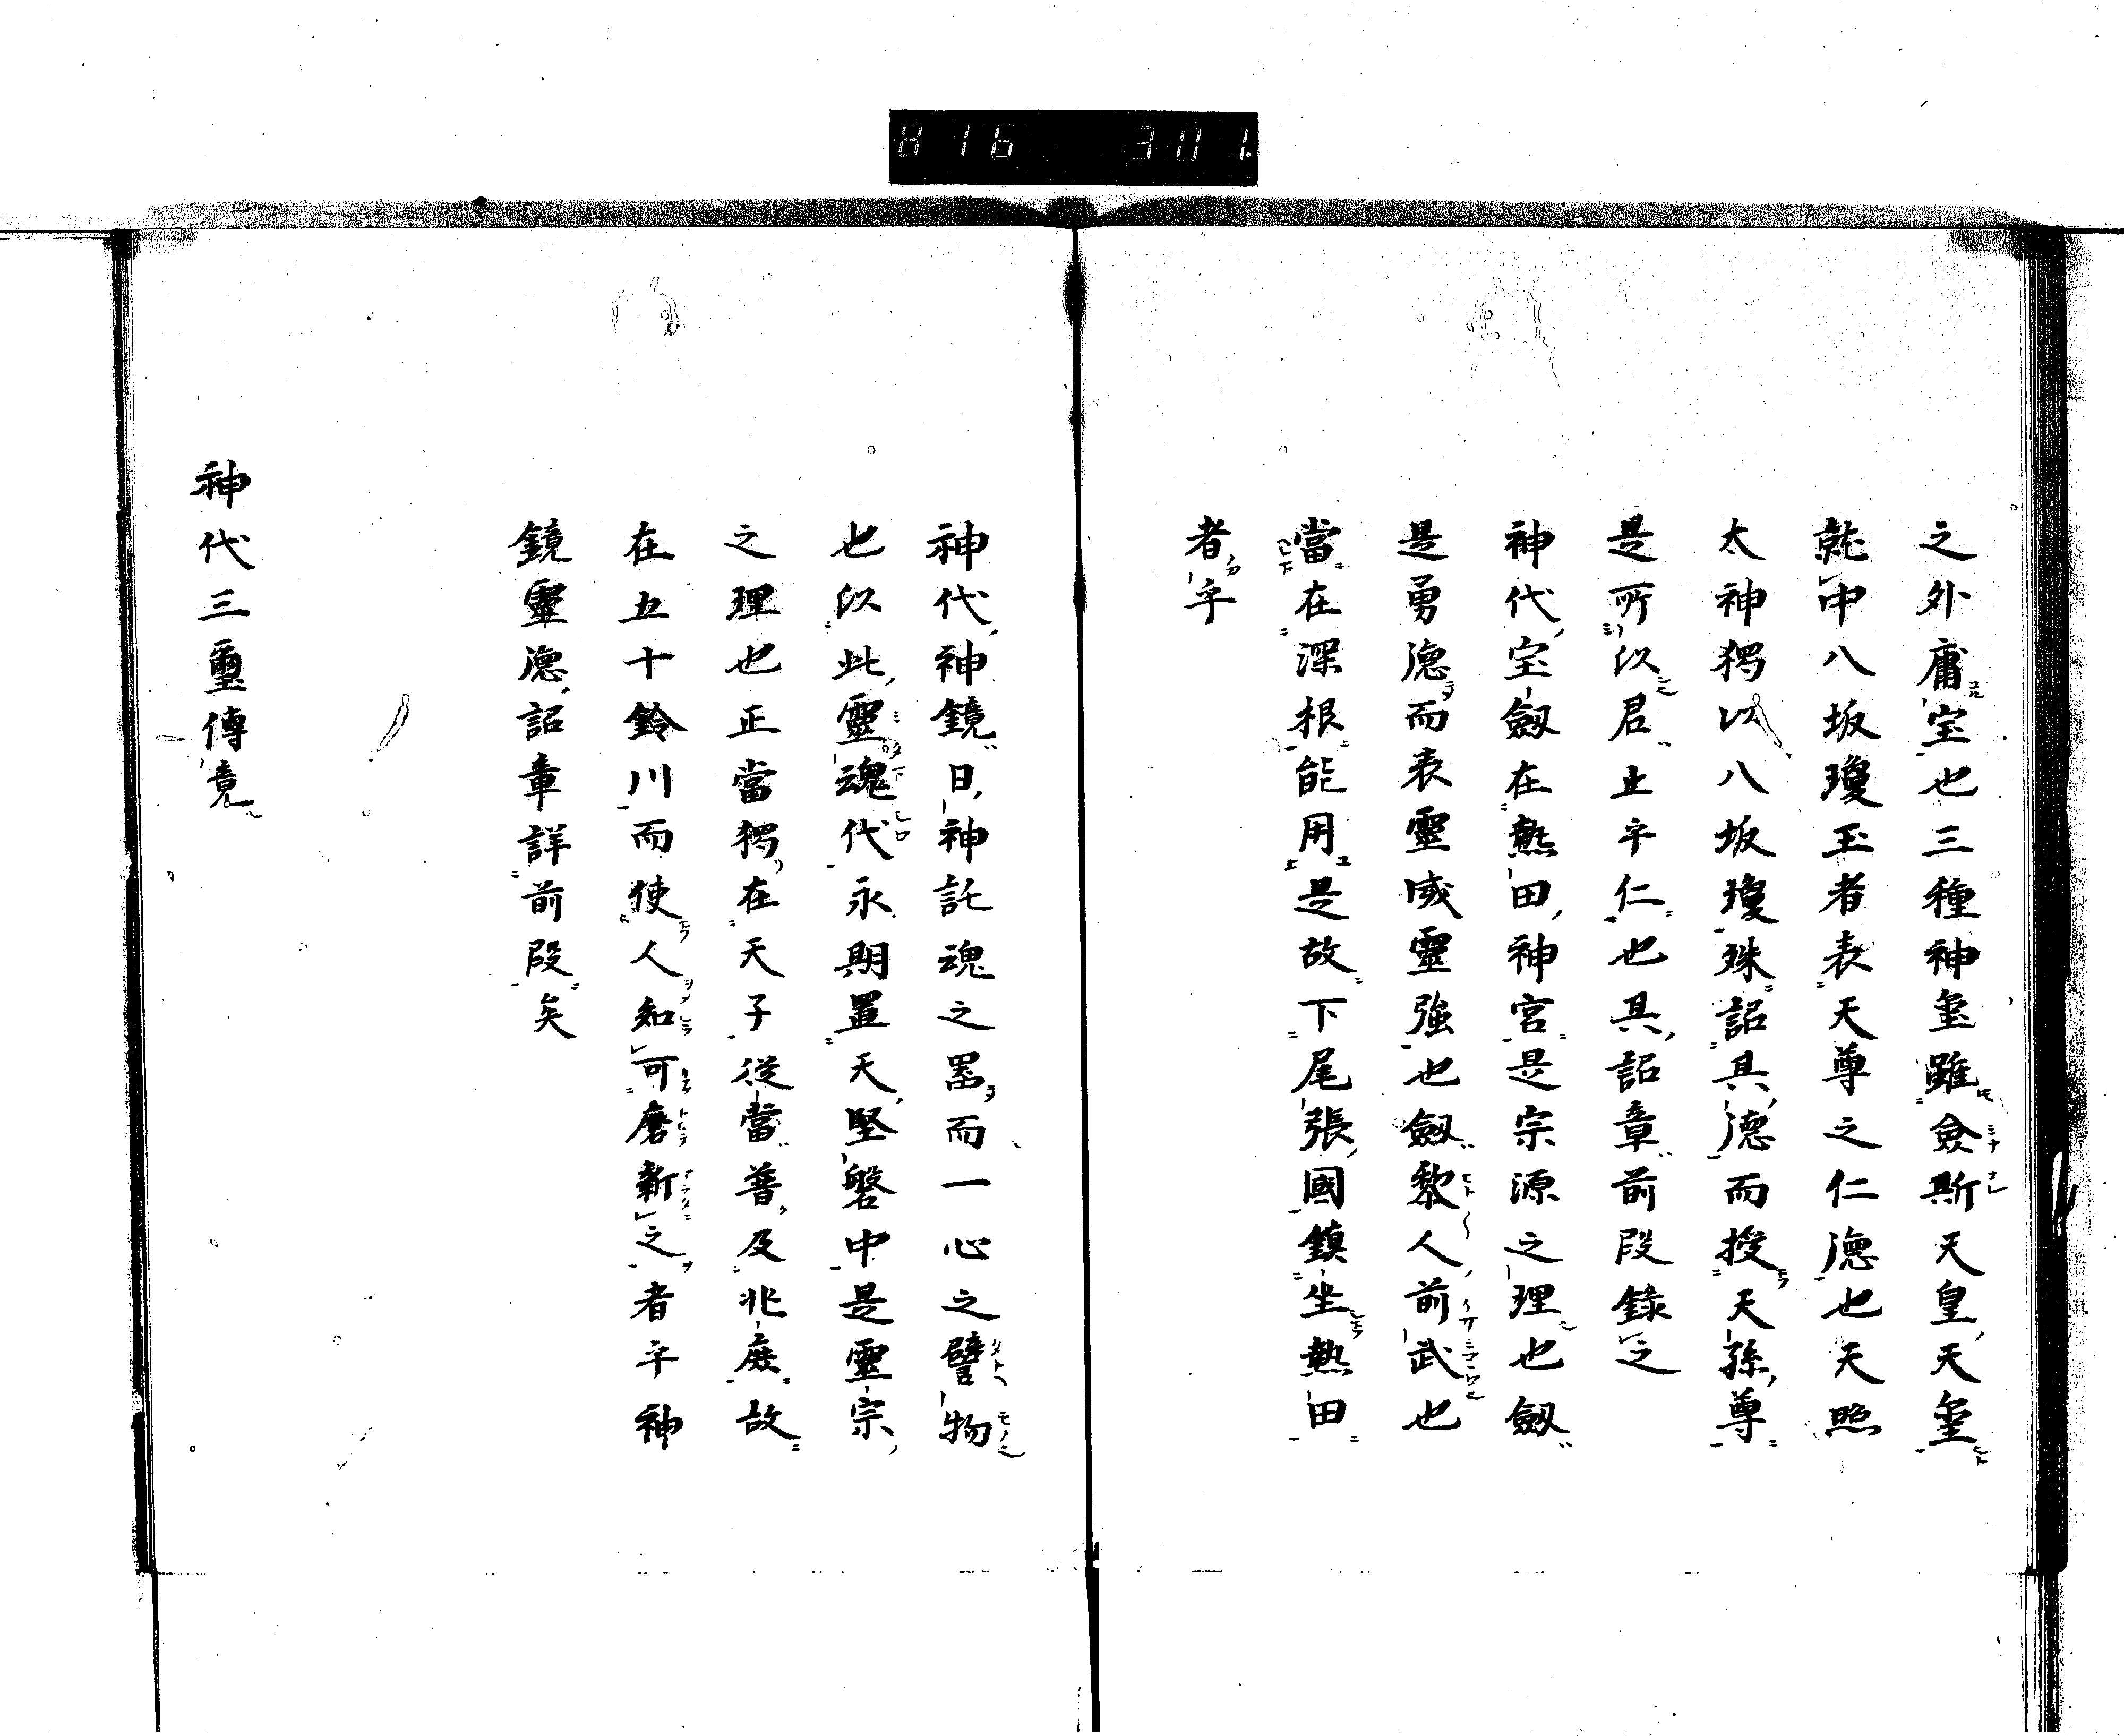 816 301.
之外庸宝也三種神璽雖僉斯天皇天璽
就中八坂瓊玉者表天尊之仁德也天照
太神獨以八坂瓊殊詔其德而授天孫尊
是所以君止乎仁也具詔章前段錄之
神代宝劔在熱田神宮是宗源之理也劔
是勇德而表靈威靈強也劔黎人前武也
當在深根能用是故下尾張國鎮坐熱田
者乎
神代神鏡日神託魂之器而一心之譬物
也以此靈魂代永期置天堅磐中是靈宗
之理也正當獨在天子從當普及兆庶故
在五十鈴川而使人知可磨新之者乎神
鏡靈德詔章詳前段矣
神代三璽傳竟